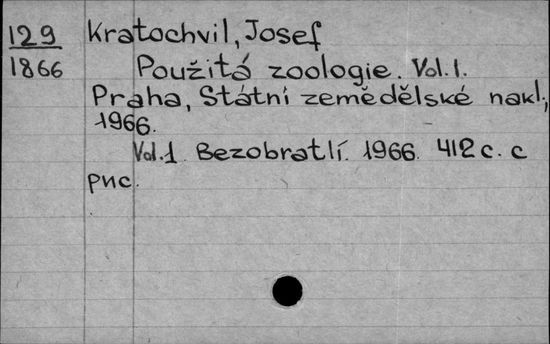 129 Kratochvil, Josef
1866 Použitá zoologie. Vol. 1.
Praha, Státní zemědělské nakl.,
1966.
Vol. 1 Bezobratlí. 1966. 412 с. с
рис.